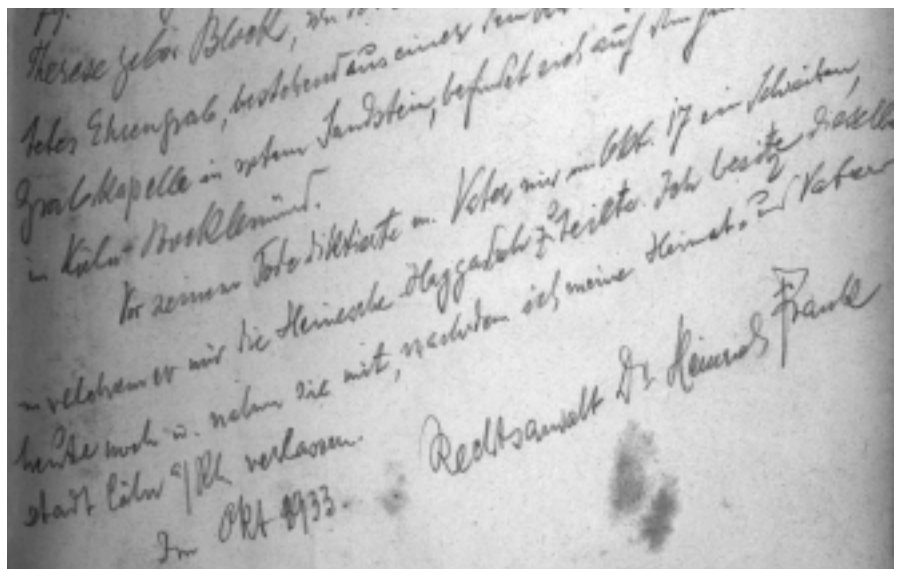 Therese gebor Block, die
tetes Ehrengrab, bestehend aus einer
Grabkapelle in rotem Sandstein, befindet sich auf dem
in Köln-Bocklemünd.
Vor seinem Tode diktierte m. Vater mir im Okt. 17 ein Schreiben,
in welchem er mir die Heinesche Haggadah zuteilte. Ich besitze dieselbe
heute noch u. nahm sie mit, nachdem ich meine Heimat- und Vater
stadt Cöln a/Rh verlassen.
Im Okt 1933.
Rechtsanwalt Dr. Heinrich Frank